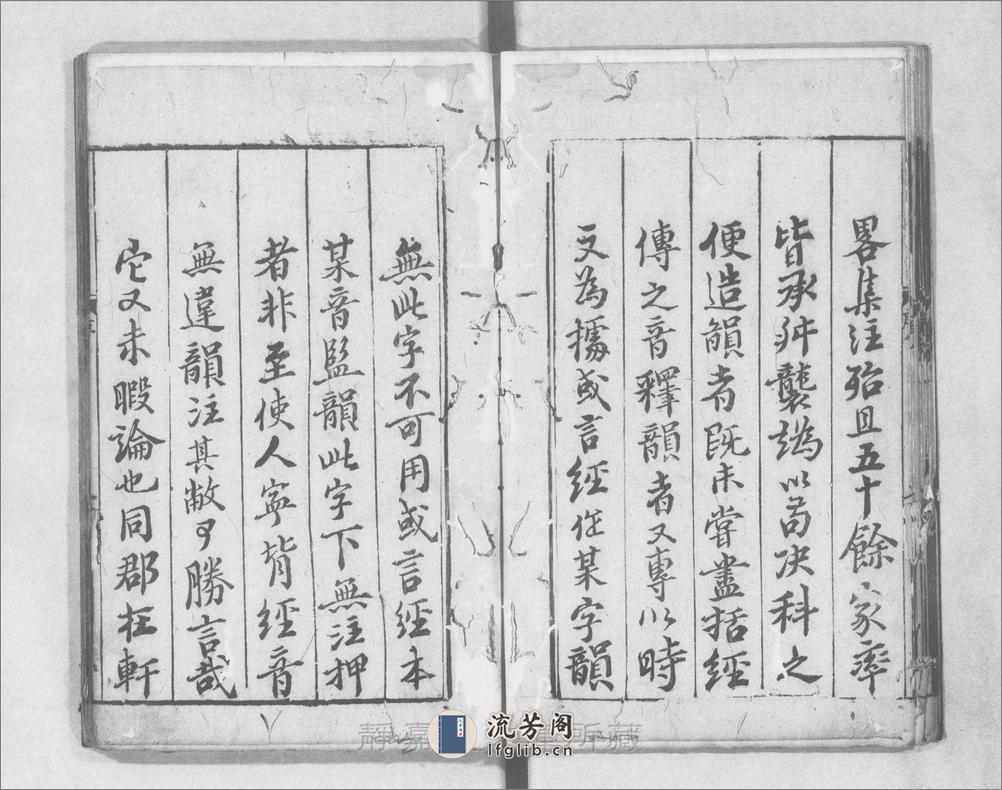 畧集注殆且五十餘家率
皆承舛襲譌以苟决科之
便造韻者既未嘗盡括經
傳之音釋韻者又專以時
文為據或言經在某字韻
無此字不可用或言經本
某音監韻此字下無注押
者非至使人寧背經音
無違韻注其敝可勝言哉
它又未暇論也同郡在軒
靜嘉 所藏
流芳阁
lfglib.cn